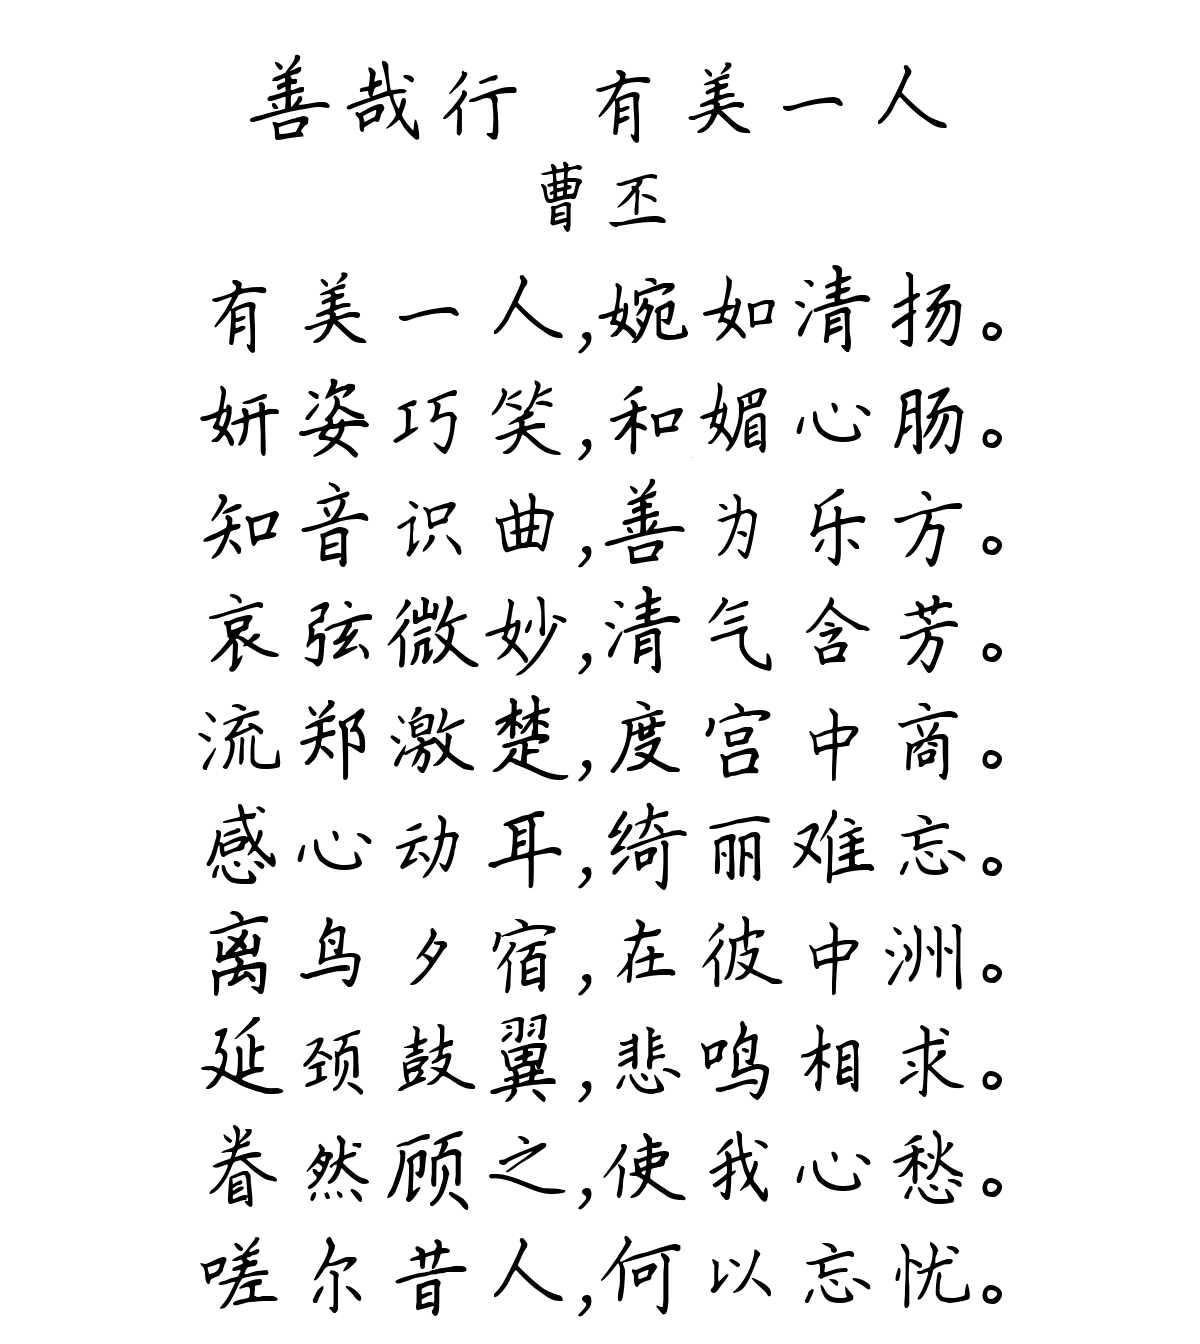 善哉行 有美一人
曹丕
有美一人,婉如清扬。
妍姿巧笑,和媚心肠。
知音识曲,善为乐方。
哀弦微妙,清气含芳。
流郑激楚,度宫中商。
感心动耳,绮丽难忘。
离鸟夕宿,在彼中洲。
延颈鼓翼,悲鸣相求。
眷然顾之,使我心愁。
嗟尔昔人,何以忘忧。